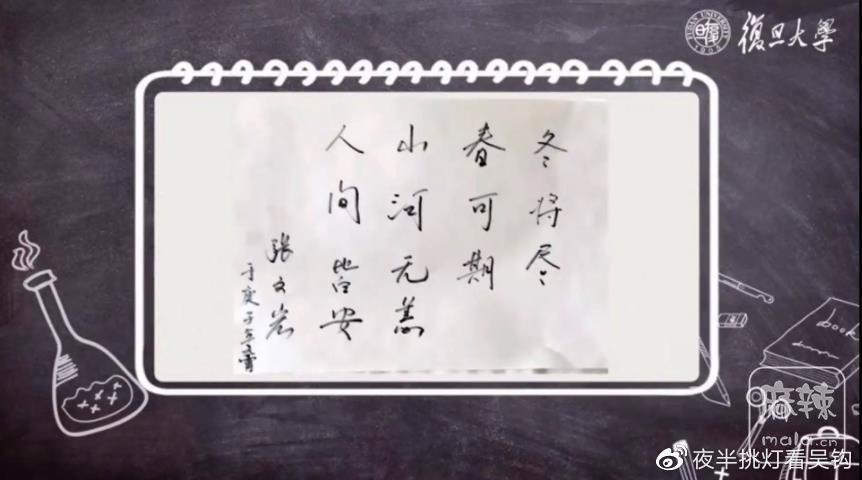 復旦大學
冬将尽
春可期
山河无恙
人间皆安
张文宏
于庚子
book
麻辣
mala.cn
夜半挑灯看吴钩